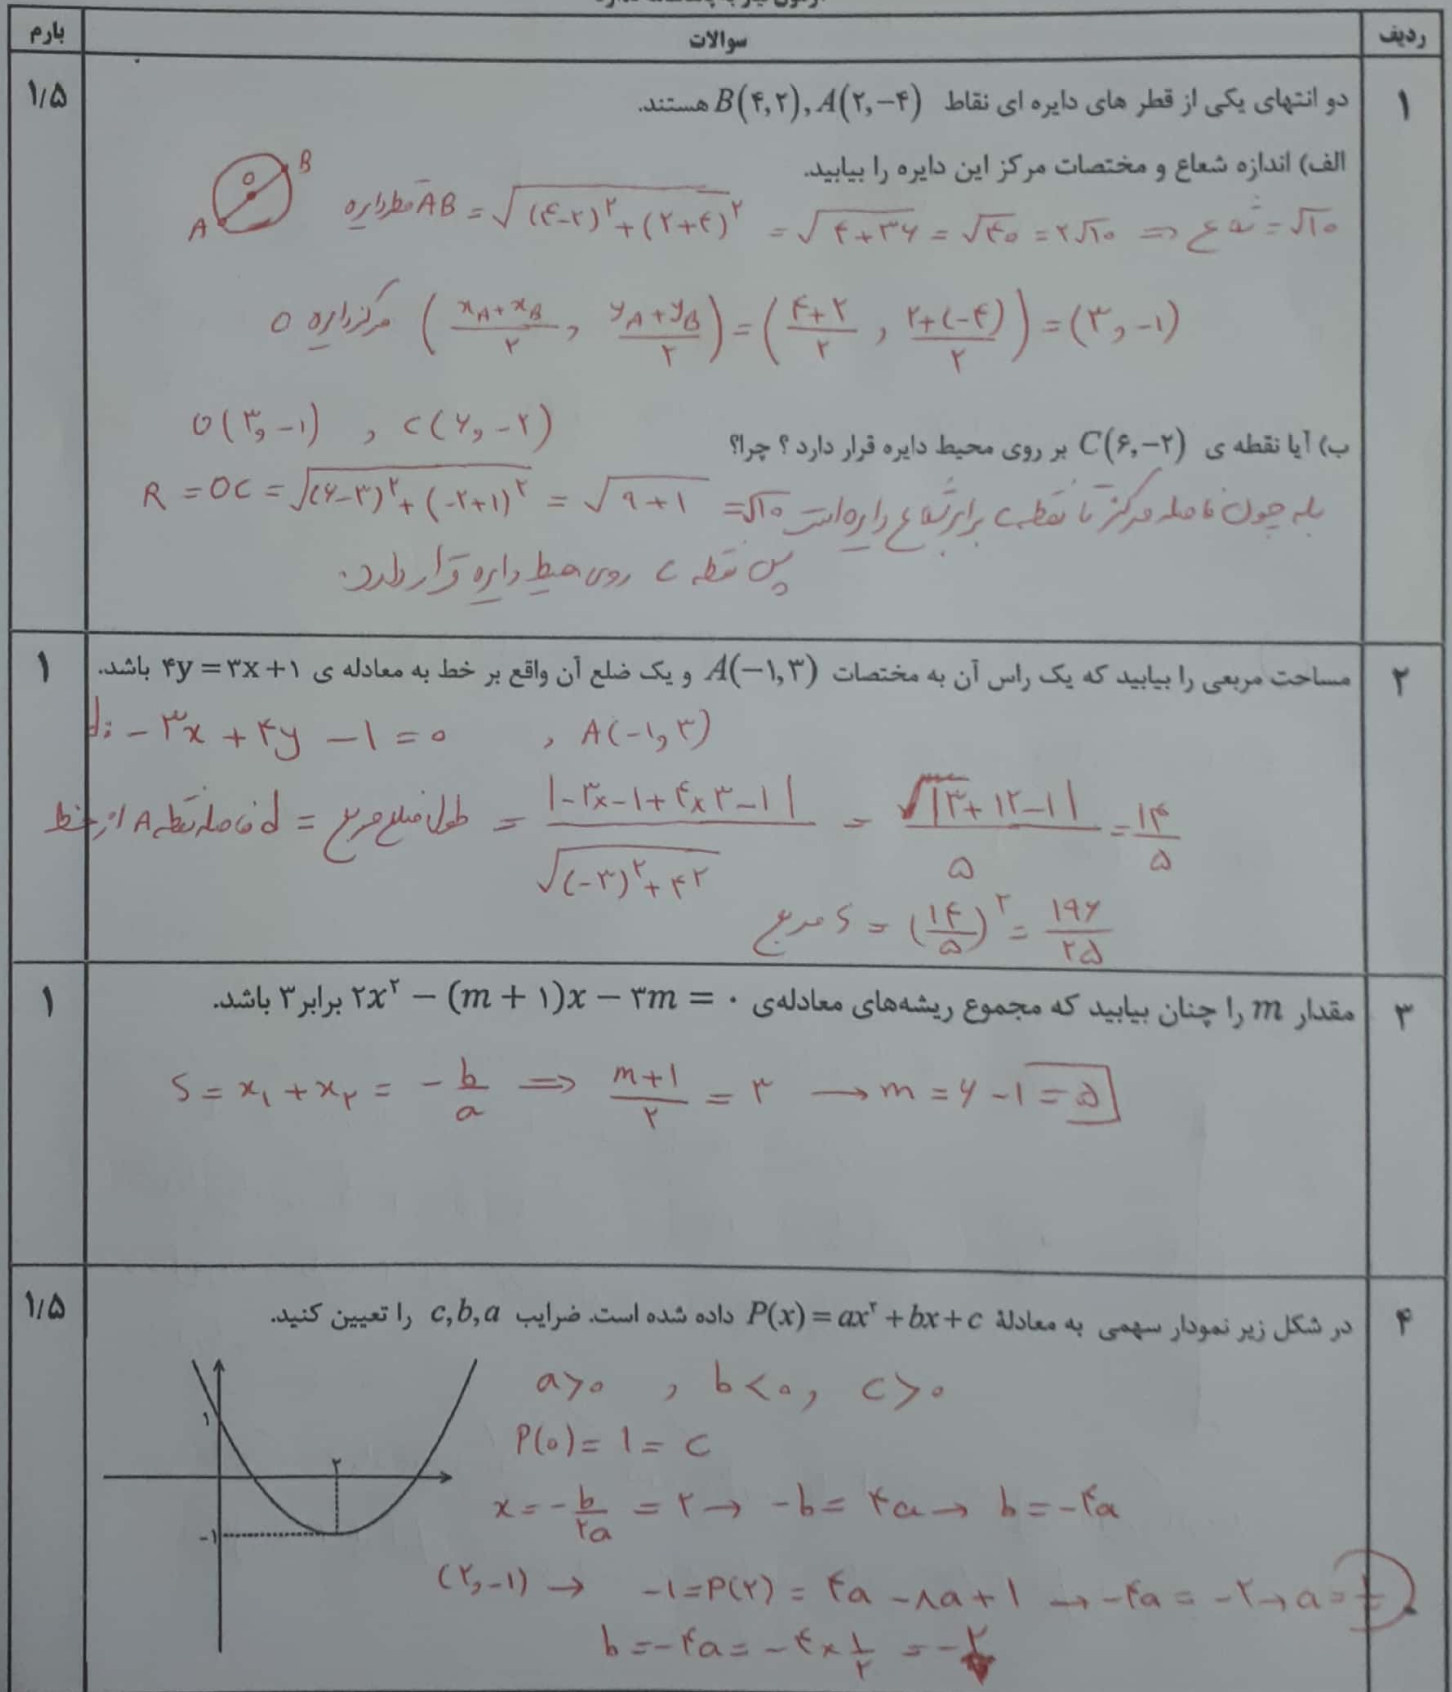 ردیف سوالات بارم
۱ دو انتهای یکی از قطر های دایره ای نقاط A(۲,-۴) , B(۴,۲) هستند. ۱/۵
الف) اندازه شعاع و مختصات مرکز این دایره را بیابید.
A O B
قطر دایره AB = √((۴-۲)^۲ + (۲+۴)^۲) = √(۴+۳۶) = √۴۰ = ۲√۱۰ ⇒ شعاع = √۱۰
مرکز دایره O ((x_A + x_B)/۲ , (y_A + y_B)/۲) = ((۴+۲)/۲ , (۲+(-۴))/۲) = (۳, -۱)
O(۳, -۱) , C(۶, -۲)
ب) آیا نقطه ی C(۶,-۲) بر روی محیط دایره قرار دارد ؟ چرا؟
R = OC = √((۶-۳)^۲ + (-۲+۱)^۲) = √(۹+۱) = √۱۰ بله چون فاصله مرکز تا نقطه C برابر شعاع دایره است
پس نقطه C روی محیط دایره قرار دارد.
۲ مساحت مربعی را بیابید که یک راس آن به مختصات A(-۱,۳) و یک ضلع آن واقع بر خط به معادله ی ۴y = ۳x + ۱ باشد. ۱
d: -۳x + ۴y - ۱ = ۰ , A(-۱, ۳)
فاصله نقطه A از خط d = طول ضلع مربع = |-۳×-۱ + ۴×۳ - ۱| / √((-۳)^۲ + ۴^۲) = |۳ + ۱۲ - ۱| / ۵ = ۱۴/۵
S مربع = (۱۴/۵)^۲ = ۱۹۶/۲۵
۳ مقدار m را چنان بیابید که مجموع ریشه‌های معادله‌ی ۲x^۲ - (m + ۱)x - ۳m = ۰ برابر ۳ باشد. ۱
S = x_۱ + x_۲ = -b/a ⇒ (m+۱)/۲ = ۳ → m = ۶ - ۱ = ۵
۴ در شکل زیر نمودار سهمی به معادلهٔ P(x) = ax^۲ + bx + c داده شده است. ضرایب c,b,a را تعیین کنید. ۱/۵
a>۰ , b<۰ , c>۰
۱
P(۰) = ۱ = c
۲
x = -b/۲a = ۲ → -b = ۴a → b = -۴a
-۱
(۲, -۱) → -۱ = P(۲) = ۴a - ۸a + ۱ → -۴a = -۲ → a = ۱/۲
b = -۴a = -۴ × ۱/۲ = -۲